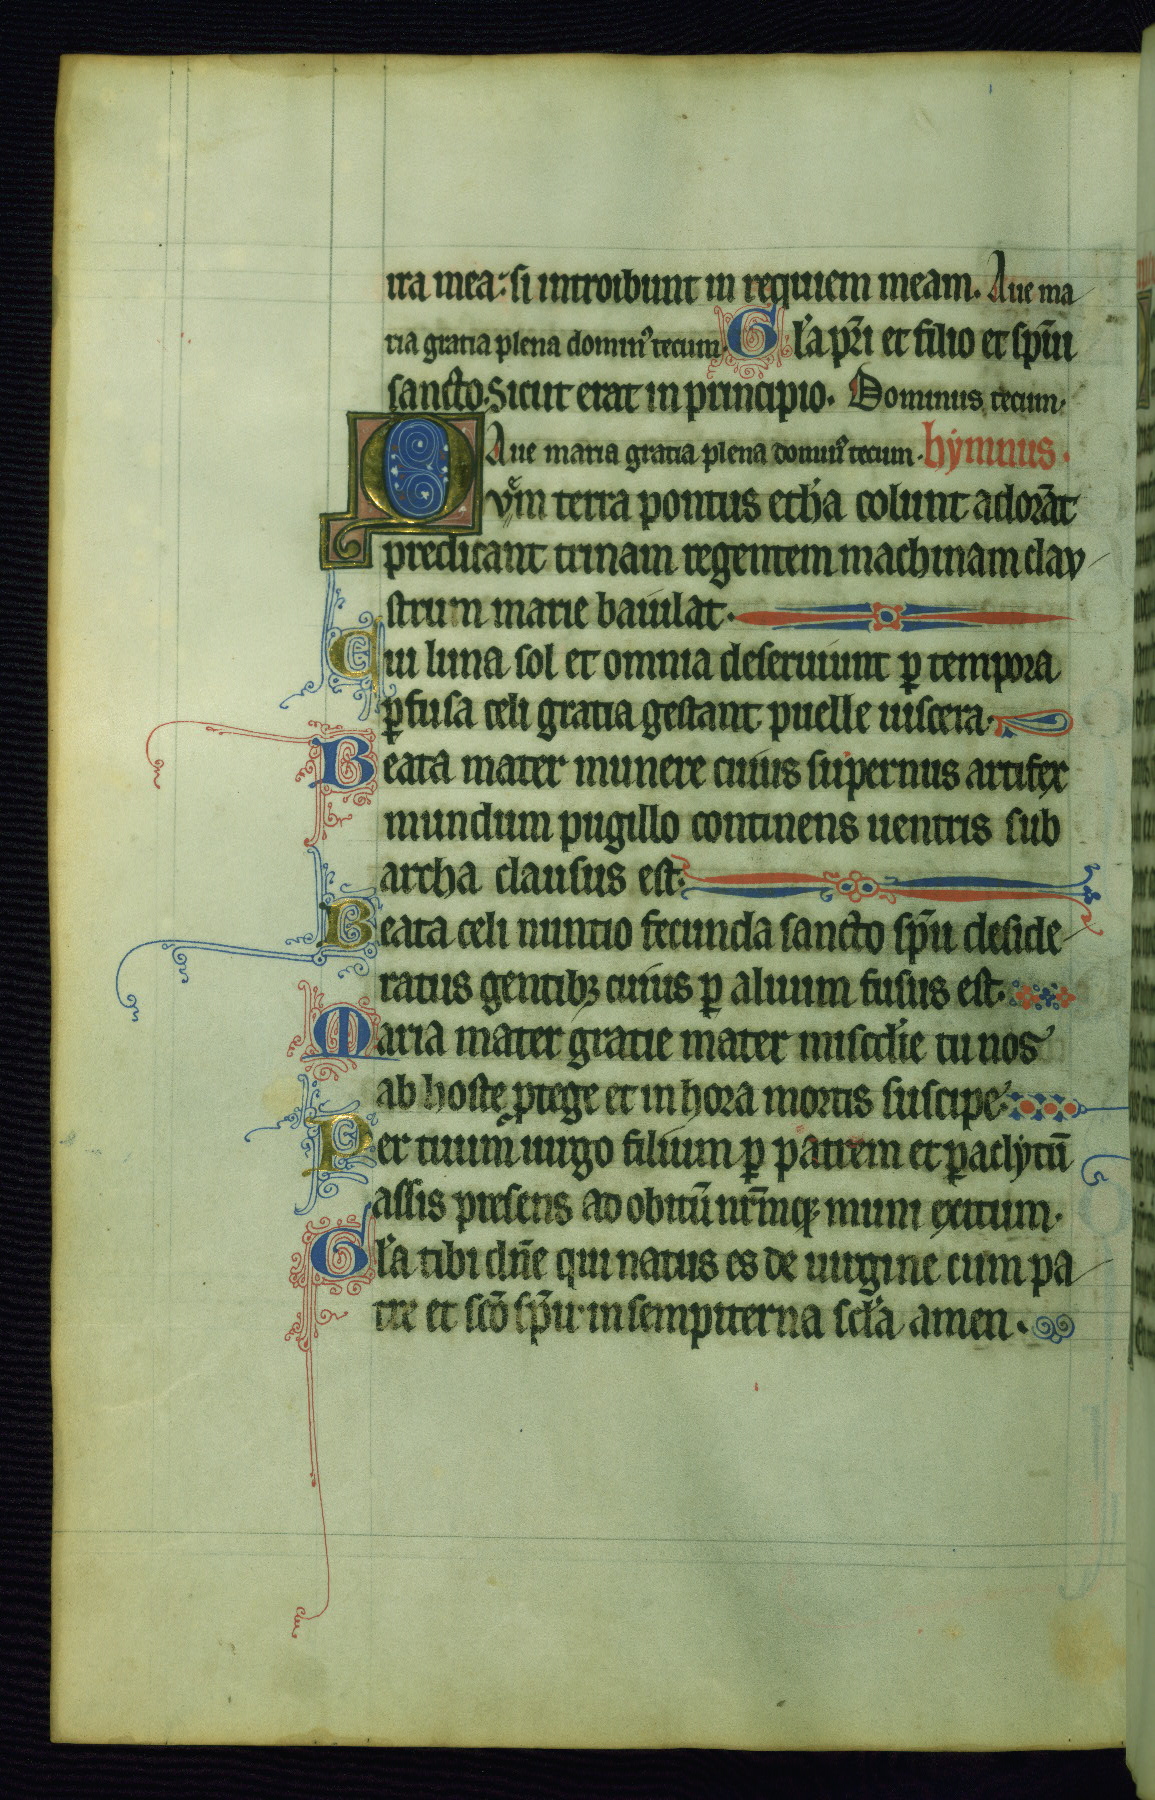 ira mea: si introibunt in requiem meam. Aue ma
ria gratia plena domin᾿ tecum. Gl'a p̄ri et filio et sp̄iu
sancto. Sicut erat in principio. Dominus tecum.
Aue maria gratia plena domin᾿ tecum. hẏmnus.
Qvem terra pontus eth'a colunt adorāt
predicant trinam regentem machinam clav
strum marie baiulat.
Cui luna sol et omnia deseruiunt ꝑ tempora
ꝑfusa celi gratia gestant puelle uiscera.
Beata mater munere cuius supernus artifex
mundum pugillo continens uentris sub
archa clausus est.
Beata celi nuntio fecunda sancto sp̄u deside
ratus gentibꝫ cuius ꝑ aluum fusus est.
Maria mater gratie mater miscd'ie tu nos
ab hoste ꝓtege et in hora mortis suscipe.
Per tuum uirgo filium ꝑ patrem et ꝑaclytū
assis presens ad obitū nr̄mqꝫ muni exitum.
Gl'a tibi dn̄e qui natus es de uirgine cum pa
tre et scō sp̄u in sempiterna scl'a amen.